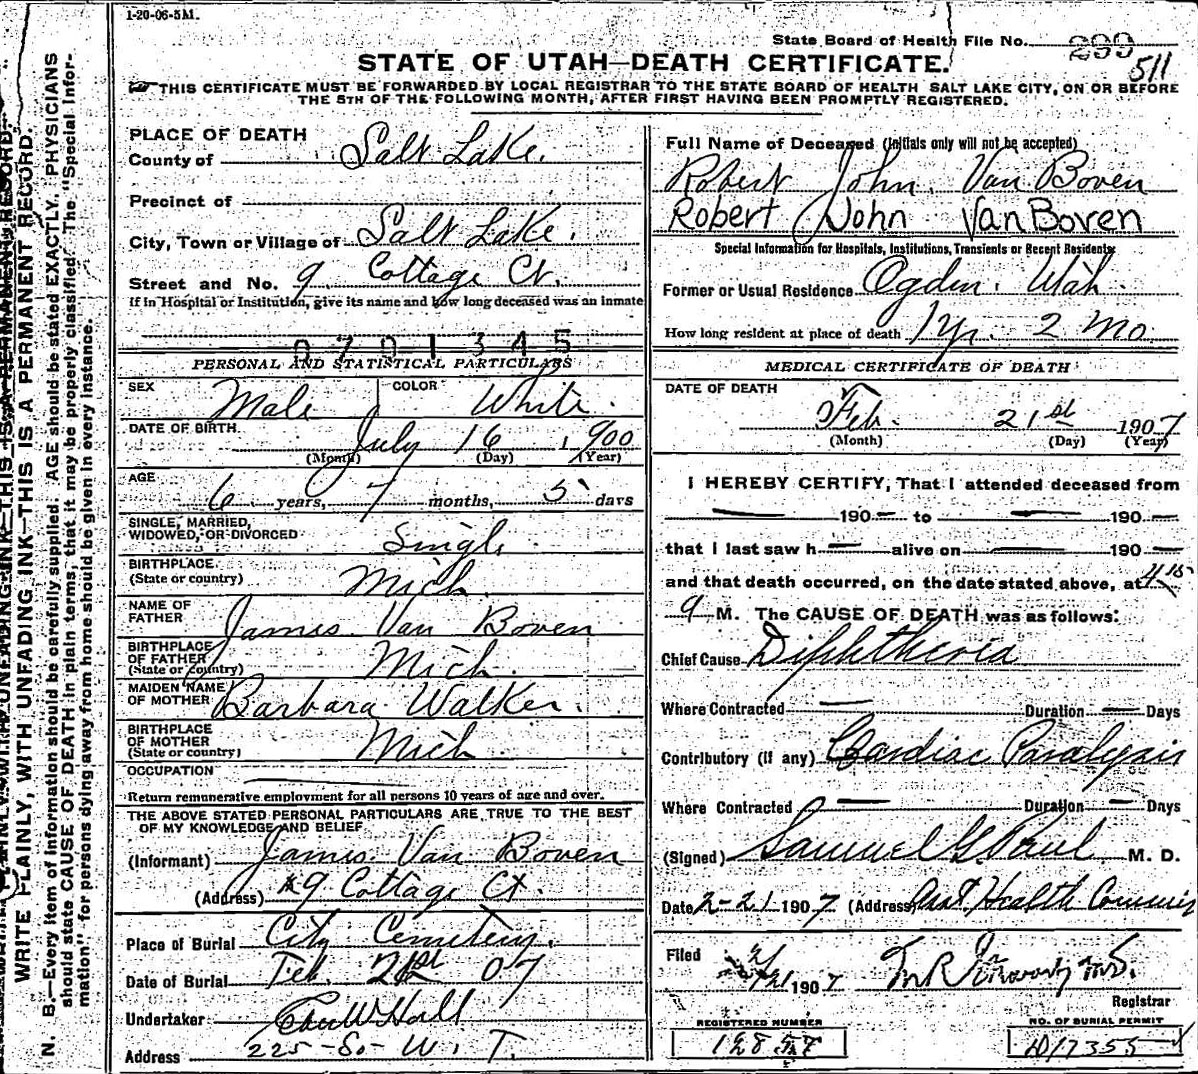 1-20-06-5M.
State Board of Health File No. 299
511
STATE OF UTAH—DEATH CERTIFICATE.
THIS CERTIFICATE MUST BE FORWARDED BY LOCAL REGISTRAR TO THE STATE BOARD OF HEALTH SALT LAKE CITY, ON OR BEFORE
THE 5TH OF THE FOLLOWING MONTH, AFTER FIRST HAVING BEEN PROMPTLY REGISTERED.
WRITE PLAINLY, WITH UNFADING INK—THIS IS A PERMANENT RECORD.
N. B.—Every item of information should be carefully supplied. AGE should be stated EXACTLY. PHYSICIANS
should state CAUSE OF DEATH in plain terms, that it may be properly classified. The "Special Infor-
mation" for persons dying away from home should be given in every instance.
PLACE OF DEATH
County of Salt Lake.
Precinct of
City, Town or Village of Salt Lake.
Street and No. 9 Cottage Ct.
If in Hospital or Institution, give its name and how long deceased was an inmate
0701345
PERSONAL AND STATISTICAL PARTICULARS
SEX Male COLOR White.
DATE OF BIRTH July 16, 1900
(Month) (Day) (Year)
AGE
6 years, 7 months, 5 days
SINGLE, MARRIED,
WIDOWED, OR DIVORCED Single.
BIRTHPLACE
(State or country) Mich.
NAME OF
FATHER James Van Boven
BIRTHPLACE
OF FATHER
(State or country) Mich.
MAIDEN NAME
OF MOTHER Barbara Walker.
BIRTHPLACE
OF MOTHER
(State or country) Mich
OCCUPATION
Return remunerative employment for all persons 10 years of age and over.
THE ABOVE STATED PERSONAL PARTICULARS ARE TRUE TO THE BEST
OF MY KNOWLEDGE AND BELIEF
(Informant) James Van Boven
(Address) #9 Cottage Ct.
Place of Burial City Cemetery.
Date of Burial Feb. 21st 07
Undertaker Hall
Address 225-So- W. T.
Full Name of Deceased (Initials only will not be accepted)
Robert John Van Boven
Robert John Van Boven
Special Information for Hospitals, Institutions, Transients or Recent Residents
Former or Usual Residence Ogden. Utah.
How long resident at place of death 1 yr. 2 mo.
MEDICAL CERTIFICATE OF DEATH
DATE OF DEATH
Feb. 21st 1907
(Month) (Day) (Year)
I HEREBY CERTIFY, That I attended deceased from
— 190 — to — 190 —
that I last saw h — alive on — 190 —
and that death occurred, on the date stated above, at 4 15
a M. The CAUSE OF DEATH was as follows:
Chief Cause Diphtheria
Where Contracted — Duration — Days
Contributory (if any) Cardiac Paralysis
Where Contracted — Duration — Days
(Signed) Samuel G. Paul M. D.
Date 2-21 1907 (Address) Asst. Health Commis
Filed 2/21 1907
Registrar
REGISTERED NUMBER
12857
NO. OF BURIAL PERMIT
D/7355